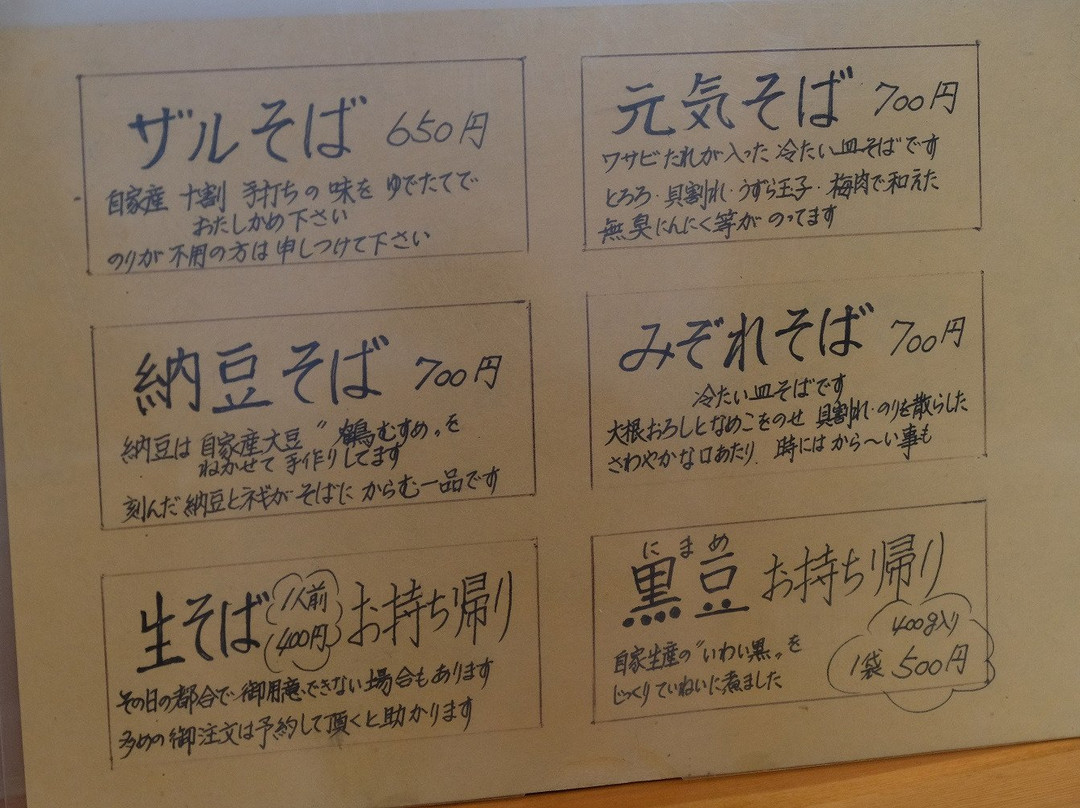 ザルそば 650円
自家産 十割 手打ちの 味を ゆでたてで
おたしかめ下さい
のりが 不用の方は 申しつけて下さい
元気そば 700円
ワサビたれが入った 冷たい皿そばです
とろろ・貝割れ・うずら玉子・梅肉で和えた
無臭にんにく等が のってます
納豆そば 700円
納豆は 自家産大豆〝鶴むすめ〟を
ねかせて 手作りしてます
刻んだ納豆とネギが そばに からむ一品です
みぞれそば 700円
冷たい皿そばです
大根おろしとなめこをのせ 貝割れ・のりを散らした
さわやかな口あたり 時には から〜い事も
生そば 1人前 400円 お持ち帰り
その日の都合で 御用意できない場合もあります
多めの御注文は予約して頂くと助かります
にまめ
黒豆 お持ち帰り
400g入り
1袋 500円
自家生産の〝いわい黒〟を
じっくりていねいに煮ました